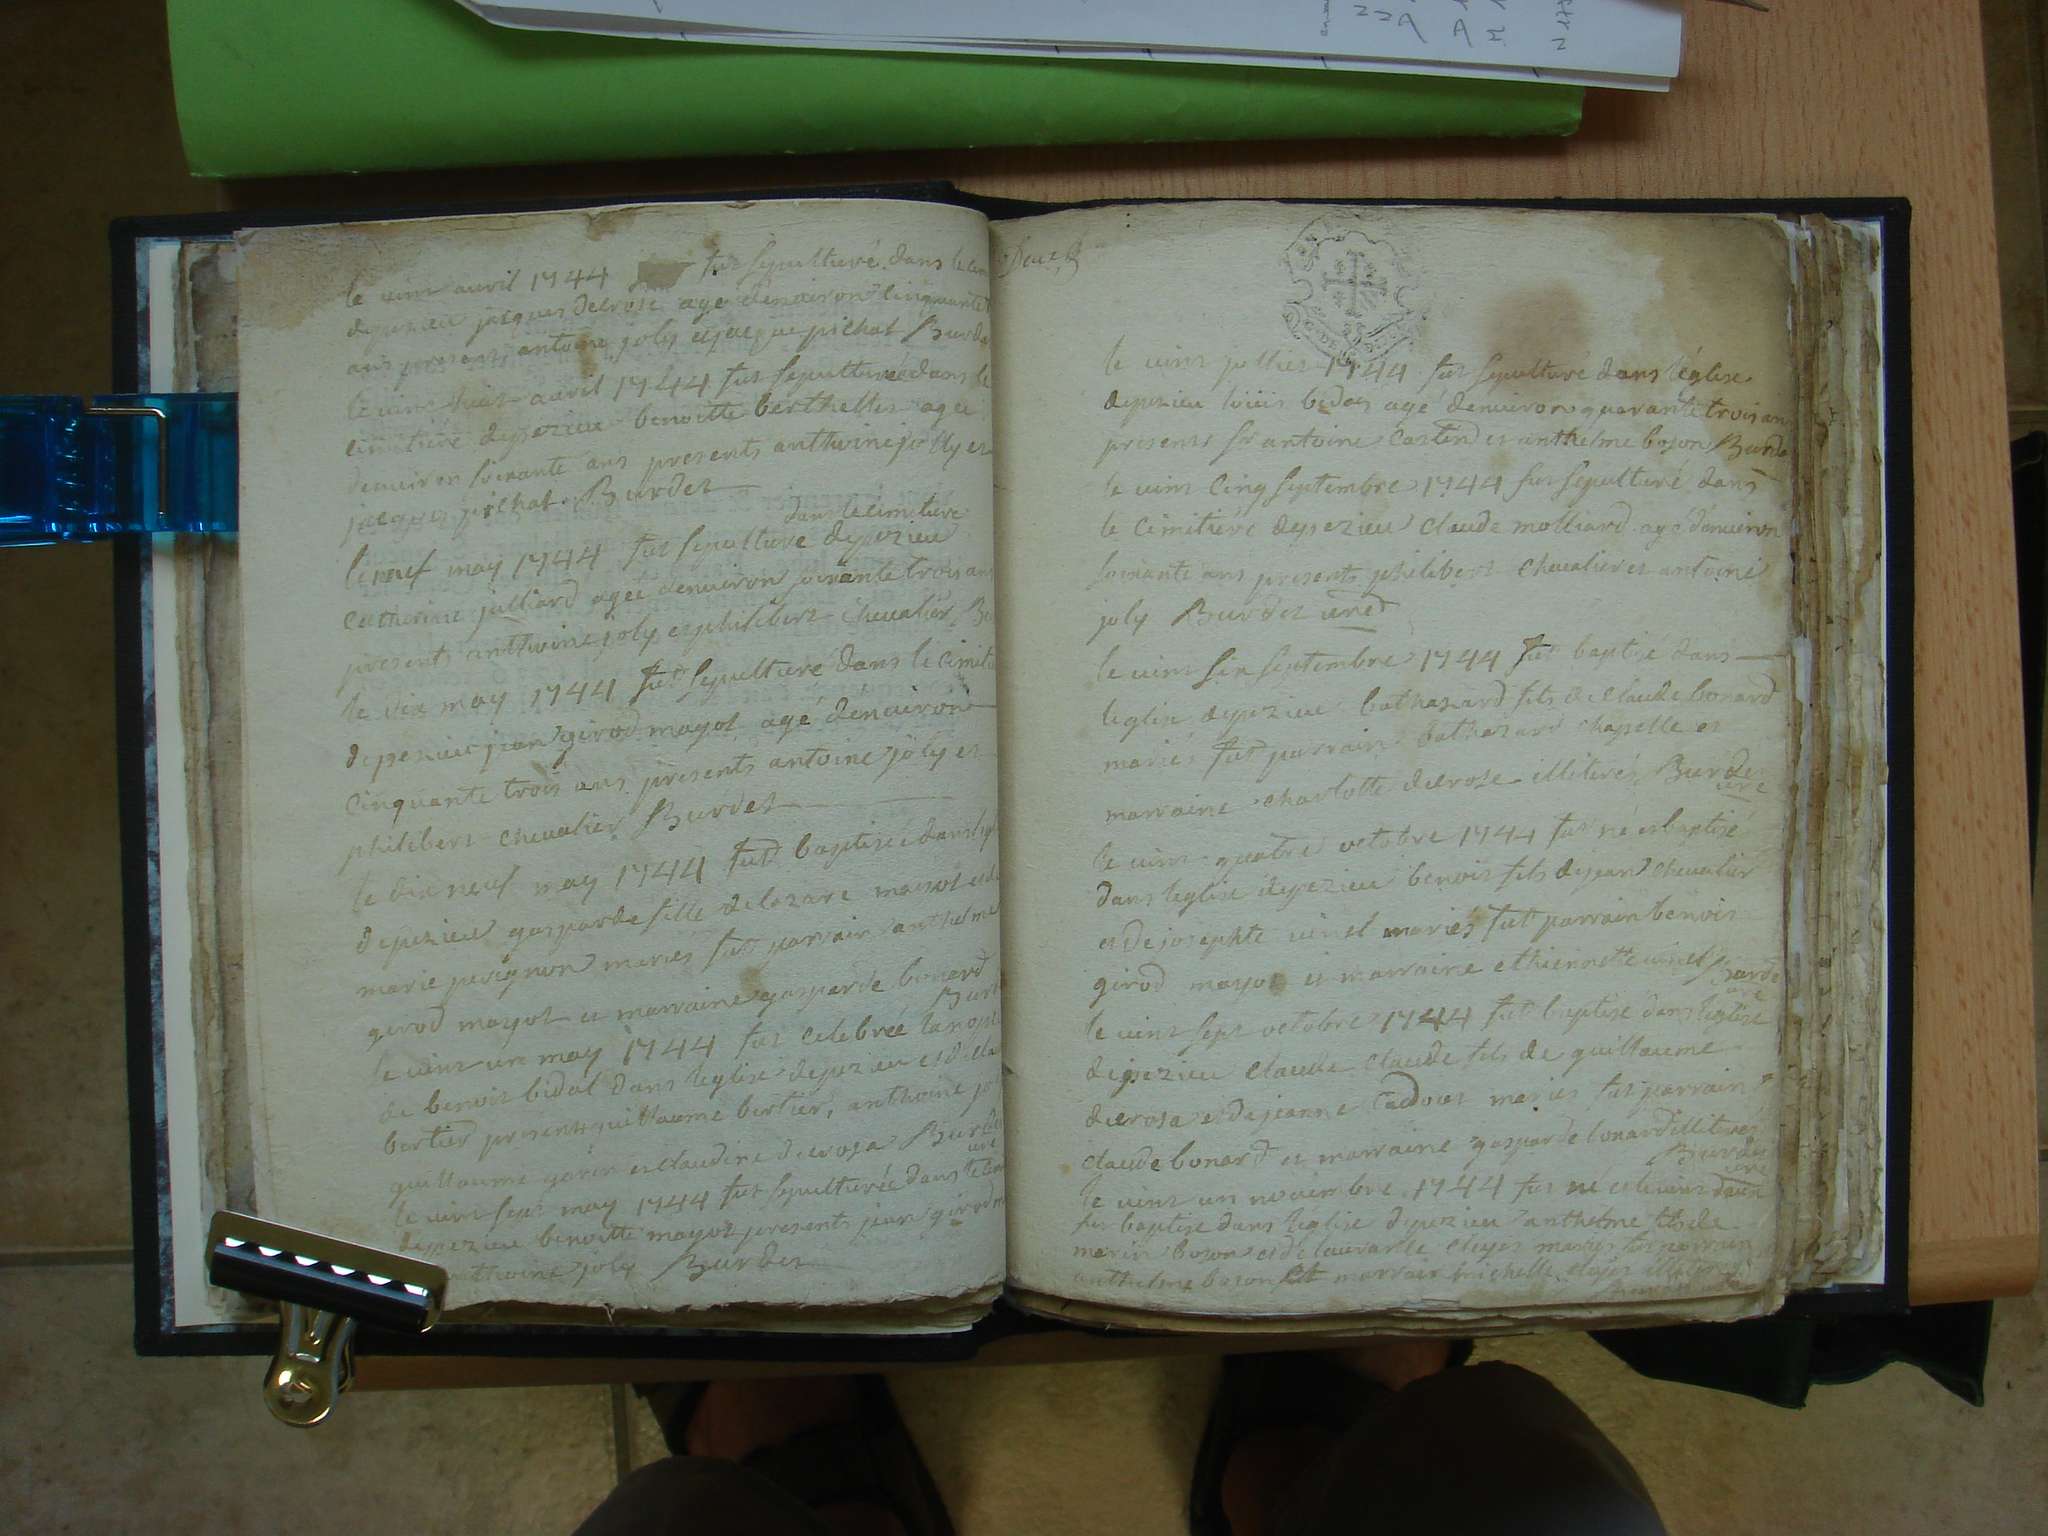 le vint avril 1744 fut sepulturé dans le cim
depezieu jacques delrose agé denviron cinquante
ans presents antoine joly et jacque pichat Burde
le vint huit avril 1744 fut sepulturée dans le
cimitiére depezieu benoitte berthellet agee
denviron soixante ans presents anthoine jolly et
jacques pichat Burdet
dans le cimitiere
le neuf may 1744 fut sepulture depezieu
catherine julliard agée denviron soixante trois ans
presents anthoine joly et philibert chevalier Bu
le dix may 1744 fut sepulturé dans le cimiti
depezieu jean girod mayot agé denviron
cinquante trois ans presents antoine joly et
philibert chevalier Burdet
le dix neuf may 1744 fut baptisée dans
depezieu gasparde fille de lazare mayot et de
marie perignon mariés fut parrain anthelme
girod mayot et marraine gasparde bonard
Burd
le vint un may 1744 fut celebrée la
de benoit bidal dans leglise depezieu et de
bertier presents guillaume bertier, anthoine jo
guillaume et claudine derosa Burde
cure
le vint sept may 1744 fut sepulturée dans le cim
depezieu benoitte mayot presents jean girod m
anthoine joly Burdet
Deux
le vint julliet 1744 fut sepulturé dans l'église
depezieu loüis bidal agé denviron quarante trois ans
presents sr antoine et anthelme boson Burde
le vint cinq septembre 1744 fut sepulturé dans
le cimitiére depezieu claude molliard agé denviron
soixante ans presents philibert chevalier et antoine
joly Burdet curé
le vint six septembre 1744 fut baptisé dans
leglise depezieu bathazard fils de claude bonard
mariés fut parrain bathazard chapelle et
marraine charlotte delrose illiterés Burde
cure
le vint quatre octobre 1744 fut né et baptisé
dans leglise depezieu benoit fils de jean chevalier
et de josephte vinet mariés fut parrain benoit
girod mayot et marraine ethiennette vinet Burde
cure
le vint sept octobre 1744 fut baptisé dans leglise
depezieu claude claude fils de guillaume
derosa et de jeanne mariés fut parrain
claude bonard et marraine gasparde bonard illiterés
Burde
cure
le vint un novembre 1744 fut né et le vint deux
fut baptisé dans l'église depezieu anthelme fils de
merin boson et de mariés fut parrain
anthelme boson et marrain michelle